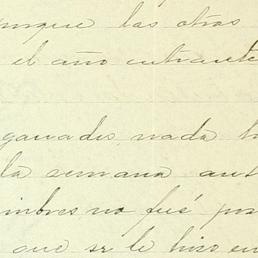 unque las otras
el año entrante
ganades nada h
la semana ant
imbres no fué pos
que se le hizo en